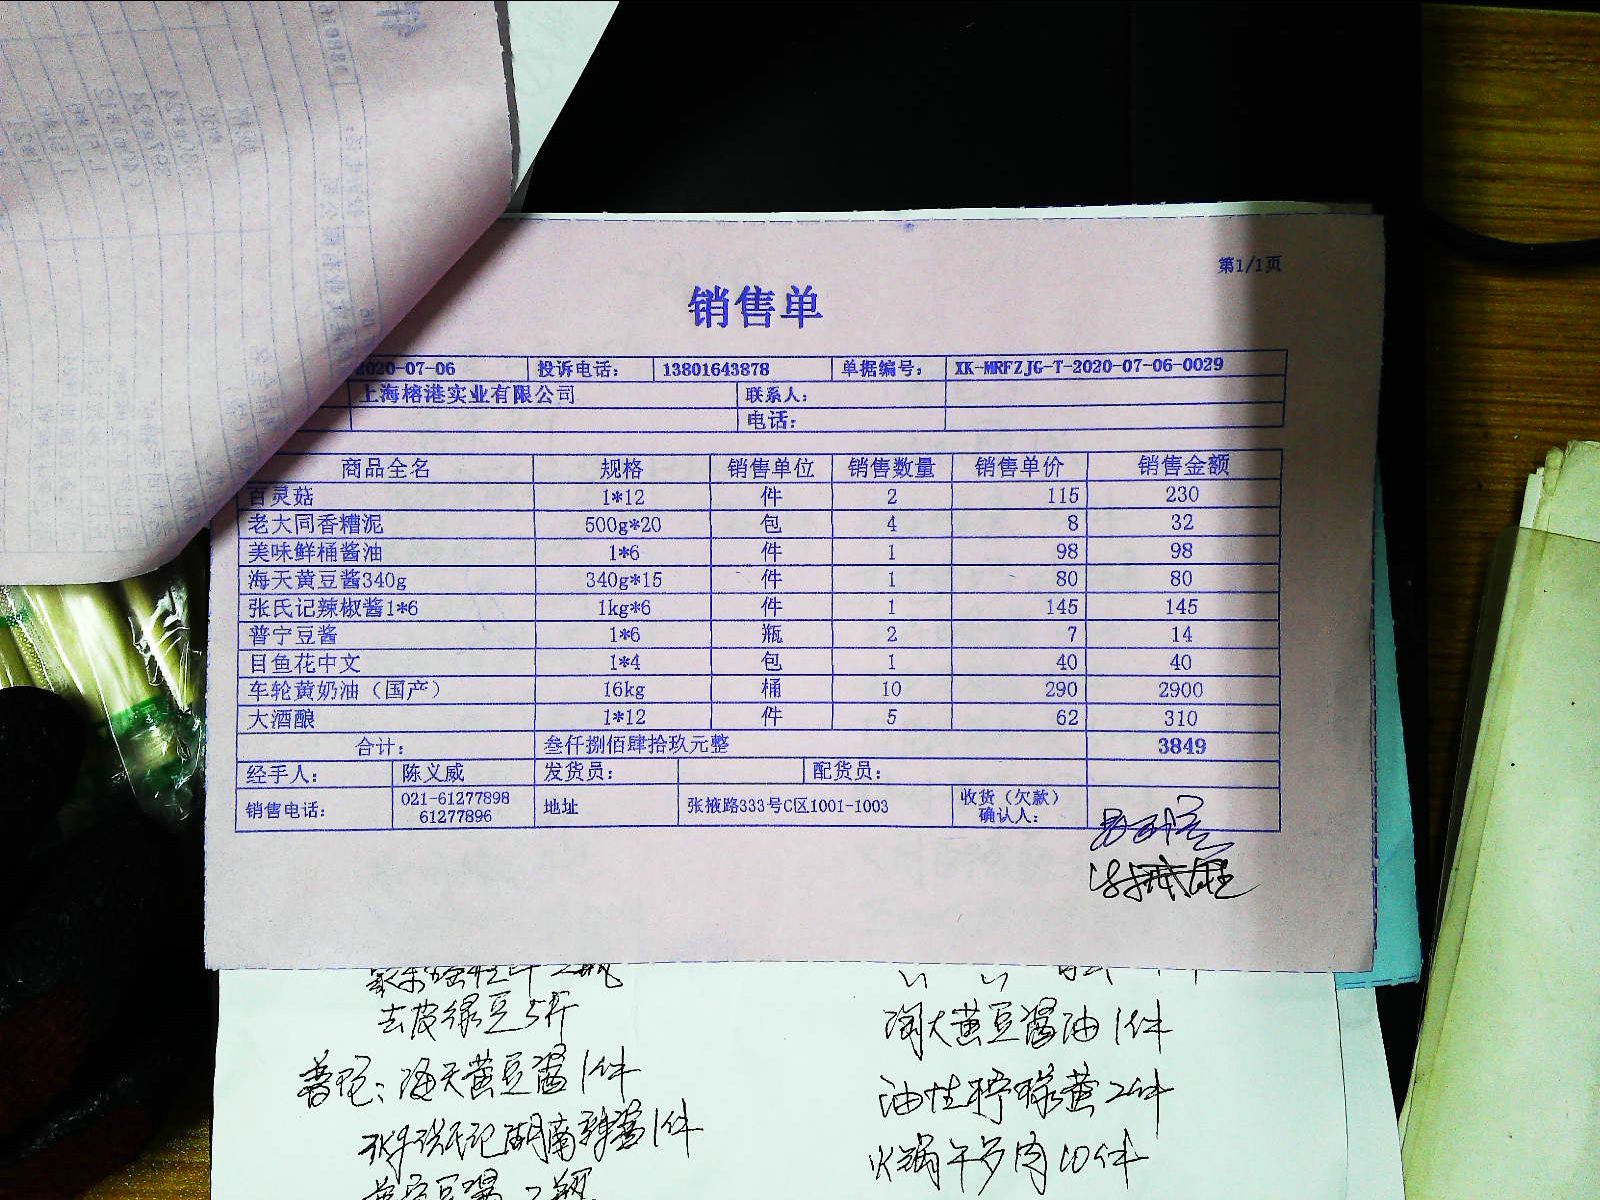 第1/1页
销售单
2020-07-06 投诉电话： 13801643878 单据编号： XK-MRFZJG-T-2020-07-06-0029
上海榕港实业有限公司 联系人：
电话：
商品全名 规格 销售单位 销售数量 销售单价 销售金额
百灵菇 1*12 件 2 115 230
老大同香糟泥 500g*20 包 4 8 32
美味鲜桶酱油 1*6 件 1 98 98
海天黄豆酱340g 340g*15 件 1 80 80
张氏记辣椒酱1*6 1kg*6 件 1 145 145
普宁豆酱 1*6 瓶 2 7 14
目鱼花中文 1*4 包 1 40 40
车轮黄奶油（国产） 16kg 桶 10 290 2900
大酒酿 1*12 件 5 62 310
合计： 叁仟捌佰肆拾玖元整 3849
经手人： 陈义威 发货员： 配货员：
销售电话： 021-61277898 61277896 地址 张掖路333号C区1001-1003 收货（欠款）确认人：
去皮绿豆5斤
淘大黄豆酱油1件
海天黄豆酱1件
油性柠檬黄2件
张氏记湖南辣酱1件
10件